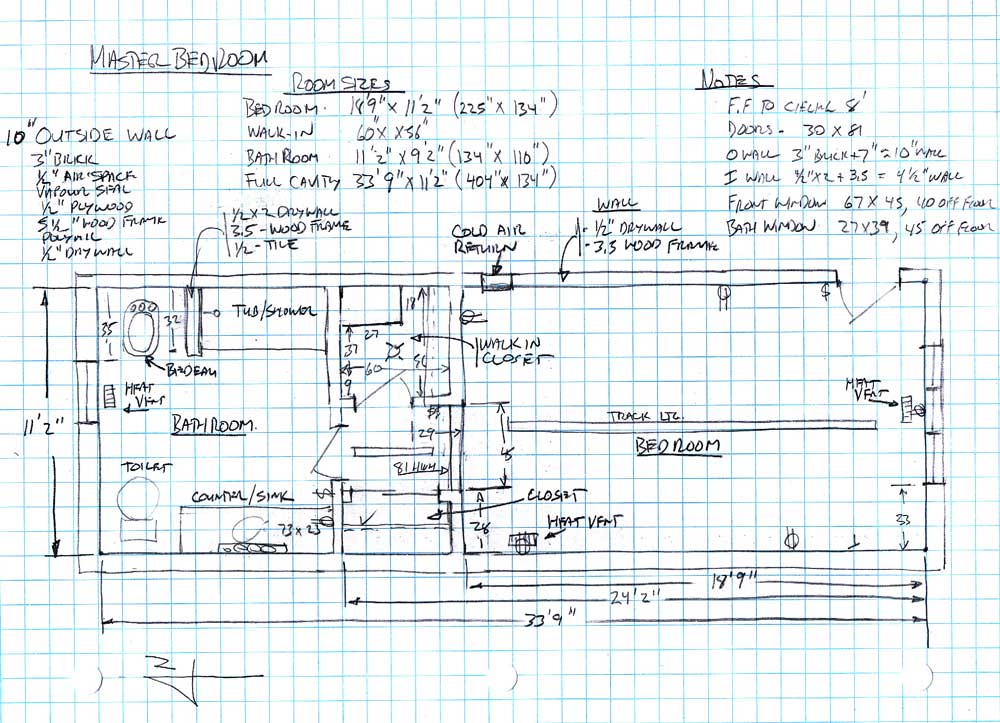 MASTER BEDROOM
ROOM SIZES
BEDROOM. 18'9" X 11'2" (225" X 134")
WALK-IN 60" X X56"
BATHROOM 11'2" X 9'2" (134" X 110")
FULL CAVITY 33'9" X 11'2" (404" X 134")
NOTES
F.F TO CIELING 8'
DOORS - 30 X 81
O WALL 3" BRICK + 7" = 10" WALL
I WALL ½" X 2 + 3.5 = 4½" WALL
FRONT WINDOW 67 X 45, 40 OFF FLOOR
BATH WINDOW 27 X 39, 45 OFF FLOOR
10" OUTSIDE WALL
3" BRICK
AIR SPACE
VAPOUR SEAL
½" PLYWOOD
5½" WOOD FRAME
½" DRYWALL
½ X 2 DRYWALL
3.5 - WOOD FRAME
½ - TILE
COLD AIR
RETURN
WALL
- ½" DRYWALL
- 3.5 WOOD FRAME
35
32
TUB/SHOWER
18
27
37
9
60
56
WALK IN
CLOSET
HEAT
VENT
BATHROOM.
11'2"
TOILET
COUNTER/SINK
73 X 23
29
81 HIGH
CLOSET
A
28
TRACK LTG.
BEDROOM
HEAT
VENT
HEAT VENT
33
18'9"
24'2"
33'9"